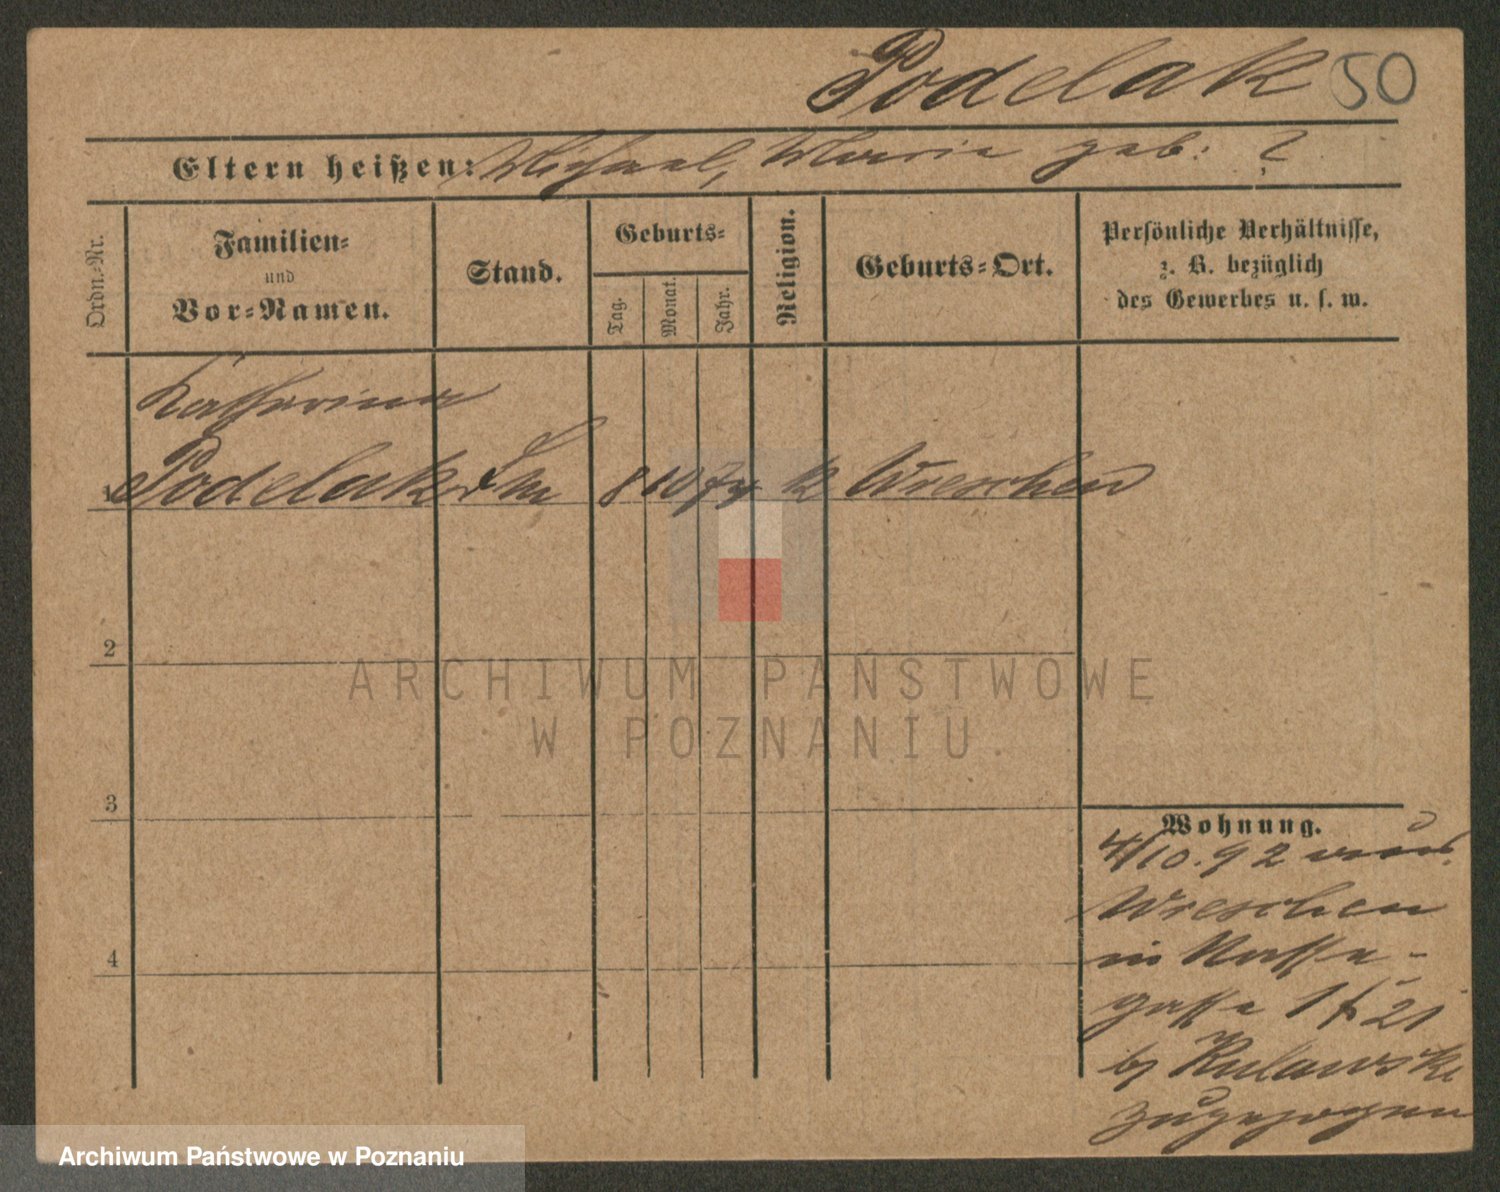 Podelak 50
Eltern heißen: Michael, Maria geb: ?
Ordn.-Nr.
Familien-
und
Vor-Namen.
Stand.
Geburts-
Tag.
Monat.
Jahr.
Religion.
Geburts-Ort.
Persönliche Verhältnisse,
z. B. bezüglich
des Gewerbes u. s. w.
Katharina
1 Podelak 8 10 k Wreschen
2
3
4
Wohnung.
4/10.92 aus
Wreschen
in Nasse-
gasse 1 f 21
by Kulawski
zugezogen
ARCHIWUM PAŃSTWOWE
W POZNANIU
Archiwum Państwowe w Poznaniu